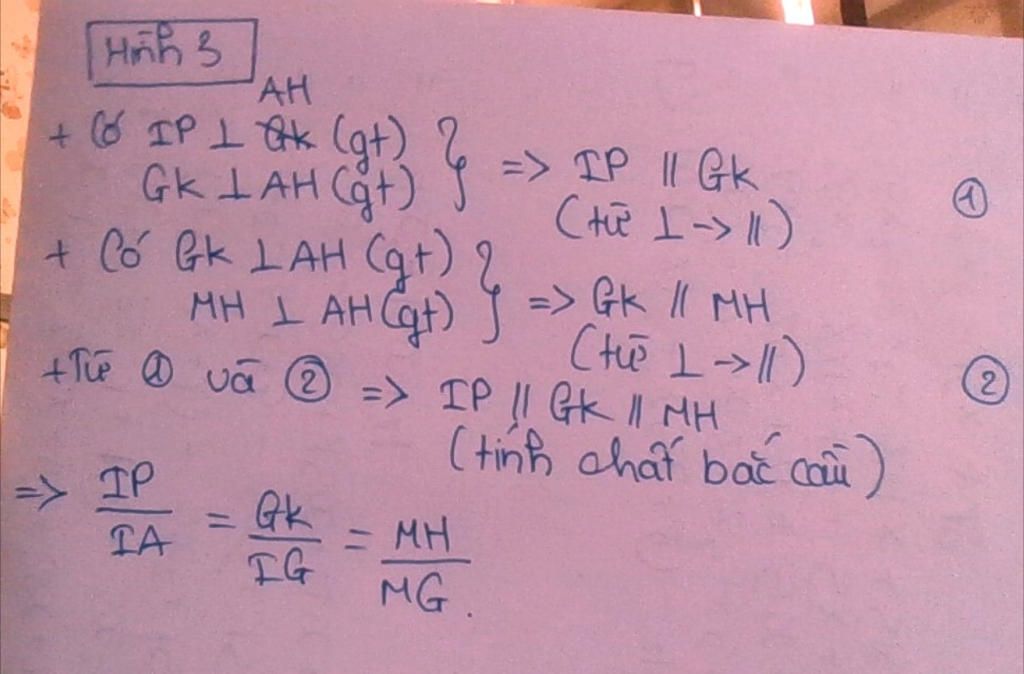 Hình 3
AH
+ Có IP ⊥ Gk (gt) } => IP // Gk ①
Gk ⊥ AH (gt)
(từ ⊥ -> //)
+ Có Gk ⊥ AH (gt) } => Gk // MH ②
MH ⊥ AH (gt)
(từ ⊥ -> //)
+ Từ ① và ② => IP // Gk // MH
(tính chất bắc cầu)
=> IP/IA = Gk/IG = MH/MG.